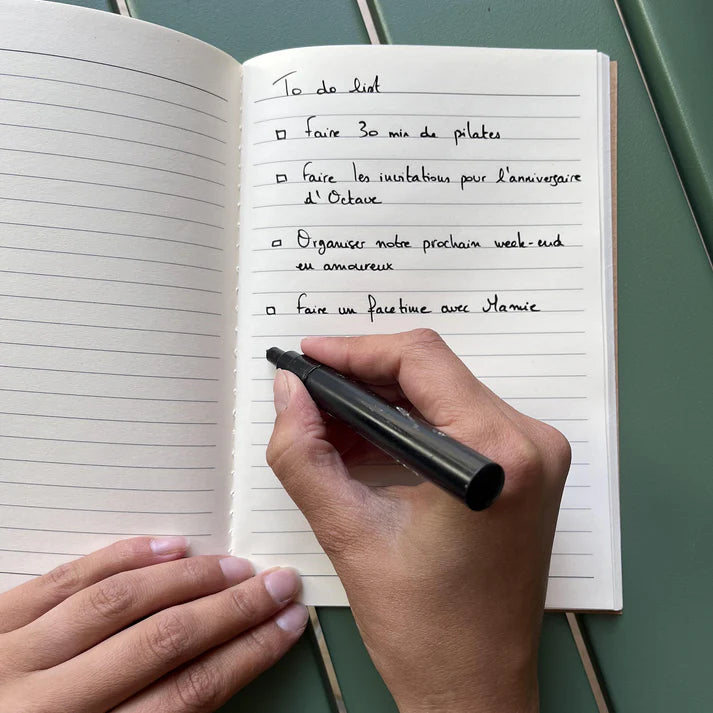 To do list
□ Faire 30 min de pilates
□ Faire les invitations pour l'anniversaire
d'Octave
□ Organiser notre prochain week-end
en amoureux
□ Faire un facetime avec Mamie